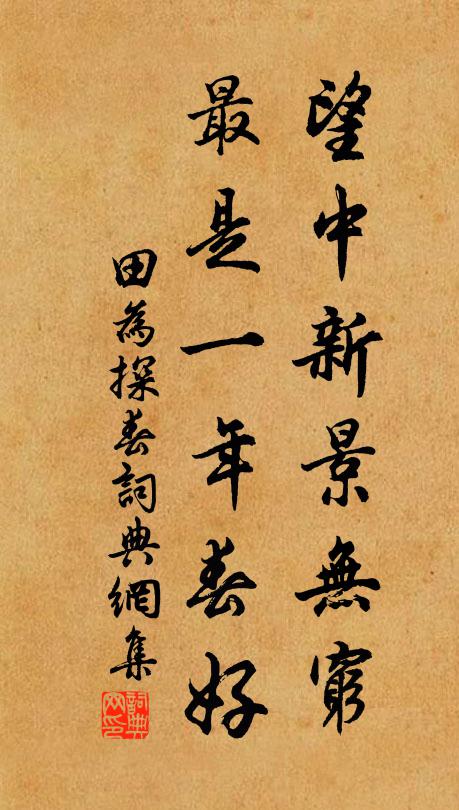 望中新景無窮
最是一年春好
田為探春詞典網集
詞典
網印